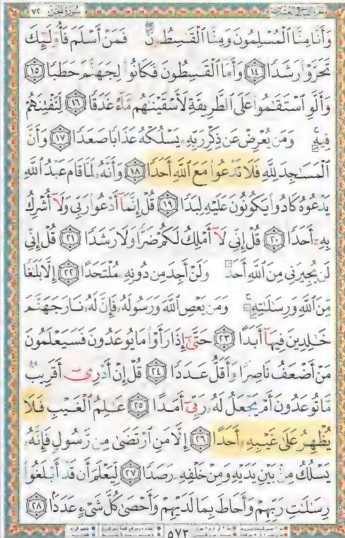 سورة الجن ٧٢
وَأَنَّا مِنَّا ٱلْمُسْلِمُونَ وَمِنَّا ٱلْقَٰسِطُونَ ۖ فَمَنْ أَسْلَمَ فَأُو۟لَٰٓئِكَ
تَحَرَّوْا۟ رَشَدًا ١٤ وَأَمَّا ٱلْقَٰسِطُونَ فَكَانُوا۟ لِجَهَنَّمَ حَطَبًا ١٥
وَأَلَّوِ ٱسْتَقَٰمُوا۟ عَلَى ٱلطَّرِيقَةِ لَأَسْقَيْنَٰهُم مَّآءً غَدَقًا ١٦ لِّنَفْتِنَهُمْ
فِيهِ ۚ وَمَن يُعْرِضْ عَن ذِكْرِ رَبِّهِۦ يَسْلُكْهُ عَذَابًا صَعَدًا ١٧ وَأَنَّ
ٱلْمَسَٰجِدَ لِلَّهِ فَلَا تَدْعُوا۟ مَعَ ٱللَّهِ أَحَدًا ١٨ وَأَنَّهُۥ لَمَّا قَامَ عَبْدُ ٱللَّهِ
يَدْعُوهُ كَادُوا۟ يَكُونُونَ عَلَيْهِ لِبَدًا ١٩ قُلْ إِنَّمَآ أَدْعُوا۟ رَبِّى وَلَآ أُشْرِكُ
بِهِۦٓ أَحَدًا ٢٠ قُلْ إِنِّى لَآ أَمْلِكُ لَكُمْ ضَرًّا وَلَا رَشَدًا ٢١ قُلْ إِنِّى
لَن يُجِيرَنِى مِنَ ٱللَّهِ أَحَدٌ وَلَنْ أَجِدَ مِن دُونِهِۦ مُلْتَحَدًا ٢٢ إِلَّا بَلَٰغًا
مِّنَ ٱللَّهِ وَرِسَٰلَٰتِهِۦ ۚ وَمَن يَعْصِ ٱللَّهَ وَرَسُولَهُۥ فَإِنَّ لَهُۥ نَارَ جَهَنَّمَ
خَٰلِدِينَ فِيهَآ أَبَدًا ٢٣ حَتَّىٰٓ إِذَا رَأَوْا۟ مَا يُوعَدُونَ فَسَيَعْلَمُونَ
مَنْ أَضْعَفُ نَاصِرًا وَأَقَلُّ عَدَدًا ٢٤ قُلْ إِنْ أَدْرِىٓ أَقَرِيبٌ
مَّا تُوعَدُونَ أَمْ يَجْعَلُ لَهُۥ رَبِّىٓ أَمَدًا ٢٥ عَٰلِمُ ٱلْغَيْبِ فَلَا
يُظْهِرُ عَلَىٰ غَيْبِهِۦٓ أَحَدًا ٢٦ إِلَّا مَنِ ٱرْتَضَىٰ مِن رَّسُولٍ فَإِنَّهُۥ
يَسْلُكُ مِنۢ بَيْنِ يَدَيْهِ وَمِنْ خَلْفِهِۦ رَصَدًا ٢٧ لِّيَعْلَمَ أَن قَدْ أَبْلَغُوا۟
رِسَٰلَٰتِ رَبِّهِمْ وَأَحَاطَ بِمَا لَدَيْهِمْ وَأَحْصَىٰ كُلَّ شَىْءٍ عَدَدًۢا ٢٨
٥٧٣